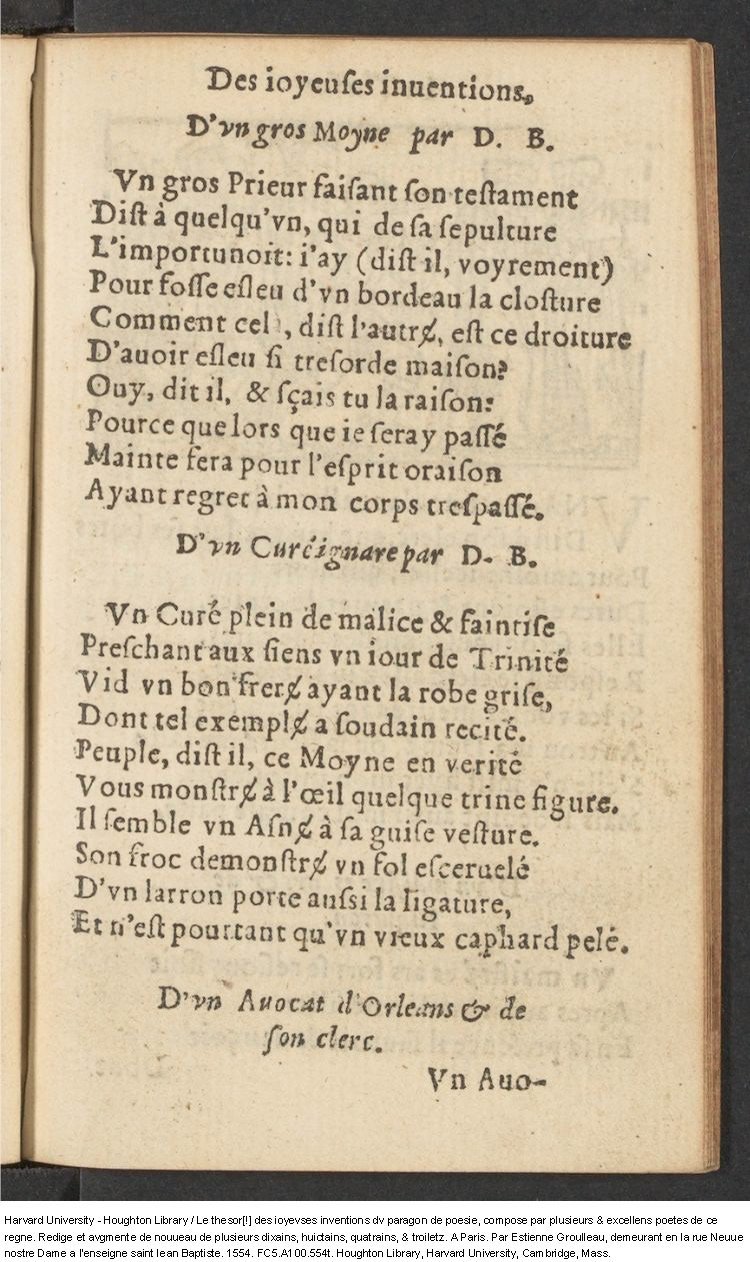 Des ioyeuſes inuentions.
D'vn gros Moyne par D. B.
Vn gros Prieur faiſant ſon teſtament
Diſt à quelqu'vn, qui de ſa ſepulture
L'importunoit: i'ay (diſt il, voyrement)
Pour foſſe eſleu d'vn bordeau la cloſture
Comment cel , diſt l'autrɇ, eſt ce droiture
D'auoir eſleu ſi treſorde maiſon?
Ouy, dit il, & ſçais tu la raiſon:
Pource que lors que ie ſeray paſſé
Mainte fera pour l'eſprit oraiſon
Ayant regret à mon corps treſpaſſé.
D'vn Curé ignare par D. B.
Vn Curé plein de malice & faintiſe
Preſchant aux ſiens vn iour de Trinité
Vid vn bon frerɇ ayant la robe griſe,
Dont tel exemplɇ a ſoudain recité.
Peuple, diſt il, ce Moyne en verité
Vous monſtrɇ à l'œil quelque trine figure.
Il ſemble vn Aſnɇ à ſa guiſe veſture.
Son froc demonſtrɇ vn fol eſceruelé
D'vn larron porte auſsi la ligature,
Et n'eſt pourtant qu'vn vieux caphard pelé.
D'vn Auocat d'Orleans & de
ſon clerc.
Vn Auo-
Harvard University - Houghton Library / Le thesor[!] des ioyevses inventions dv paragon de poesie, compose par plusieurs & excellens poetes de ce
regne. Redige et avgmente de nouueau de plusieurs dixains, huictains, quatrains, & troiletz. A Paris. Par Estienne Groulleau, demeurant en la rue Neuue
nostre Dame a l'enseigne saint Iean Baptiste. 1554. FC5.A100.554t. Houghton Library, Harvard University, Cambridge, Mass.